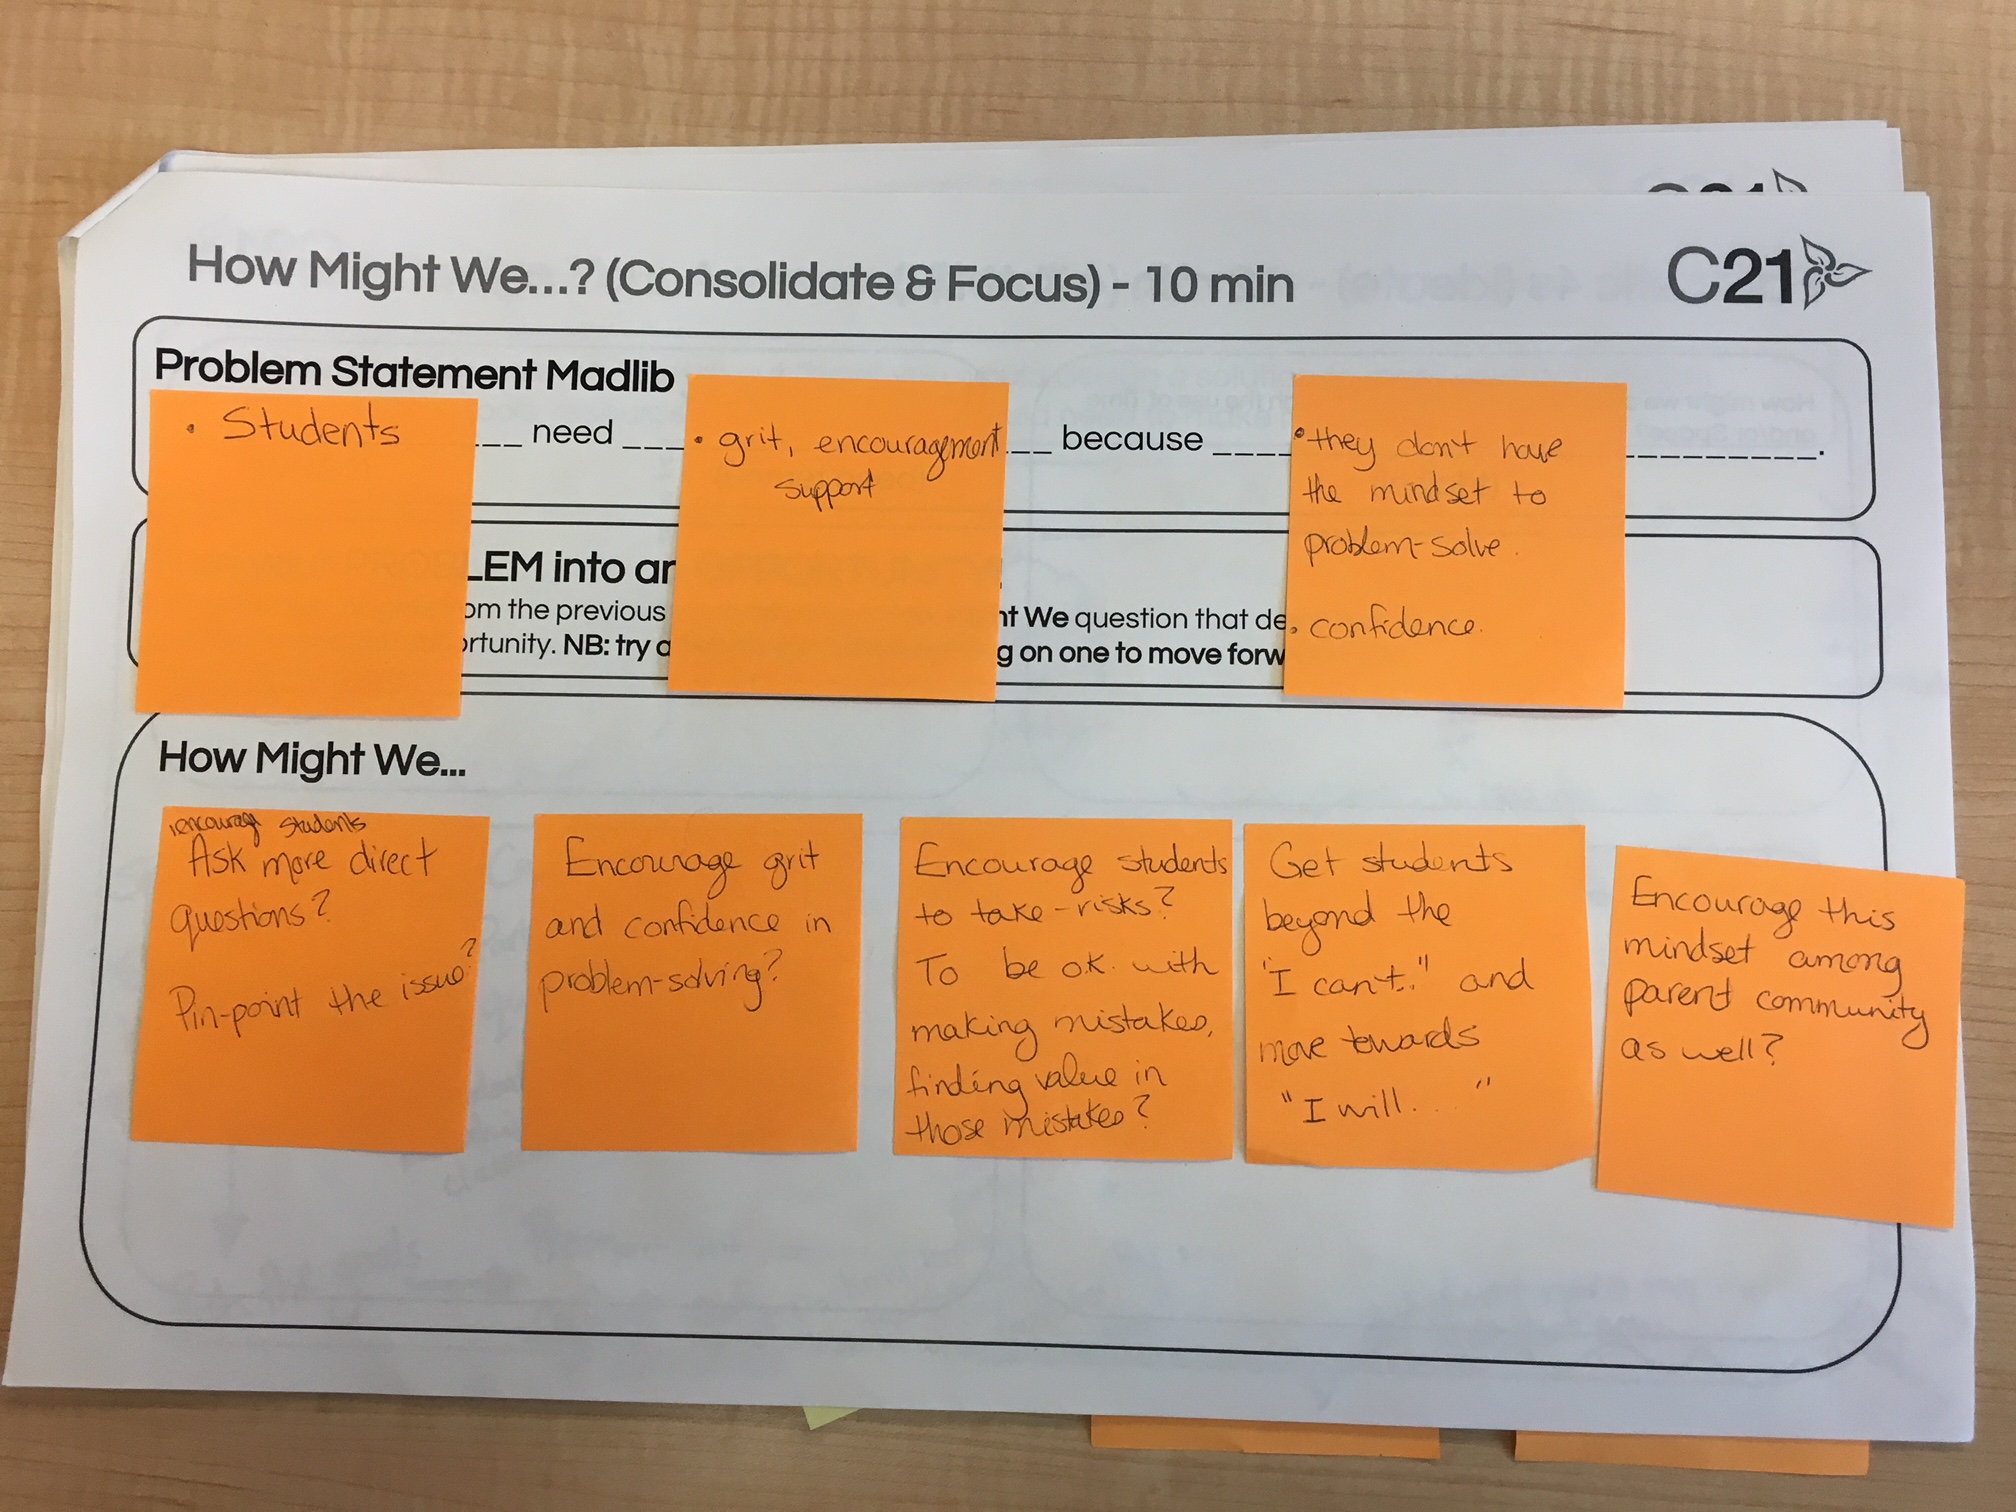 C21
How Might We...? (Consolidate & Focus) - 10 min
C21
Problem Statement Madlib
• Students
___ need ___
• grit, encouragement
support
__ because ____
• they don't have
the mindset to
problem-solve.
• confidence.
__________.
LEM into an
om the previous
nt We question that de
ortunity. NB: try
g on one to move forw
How Might We...
encourage students
Ask more direct
questions?
Pin-point the issue?
Encourage grit
and confidence in
problem-solving?
Encourage students
to take-risks?
To be o.k. with
making mistakes,
finding value in
those mistakes?
Get students
beyond the
"I can't.." and
move towards
"I will... "
Encourage this
mindset among
parent community
as well?